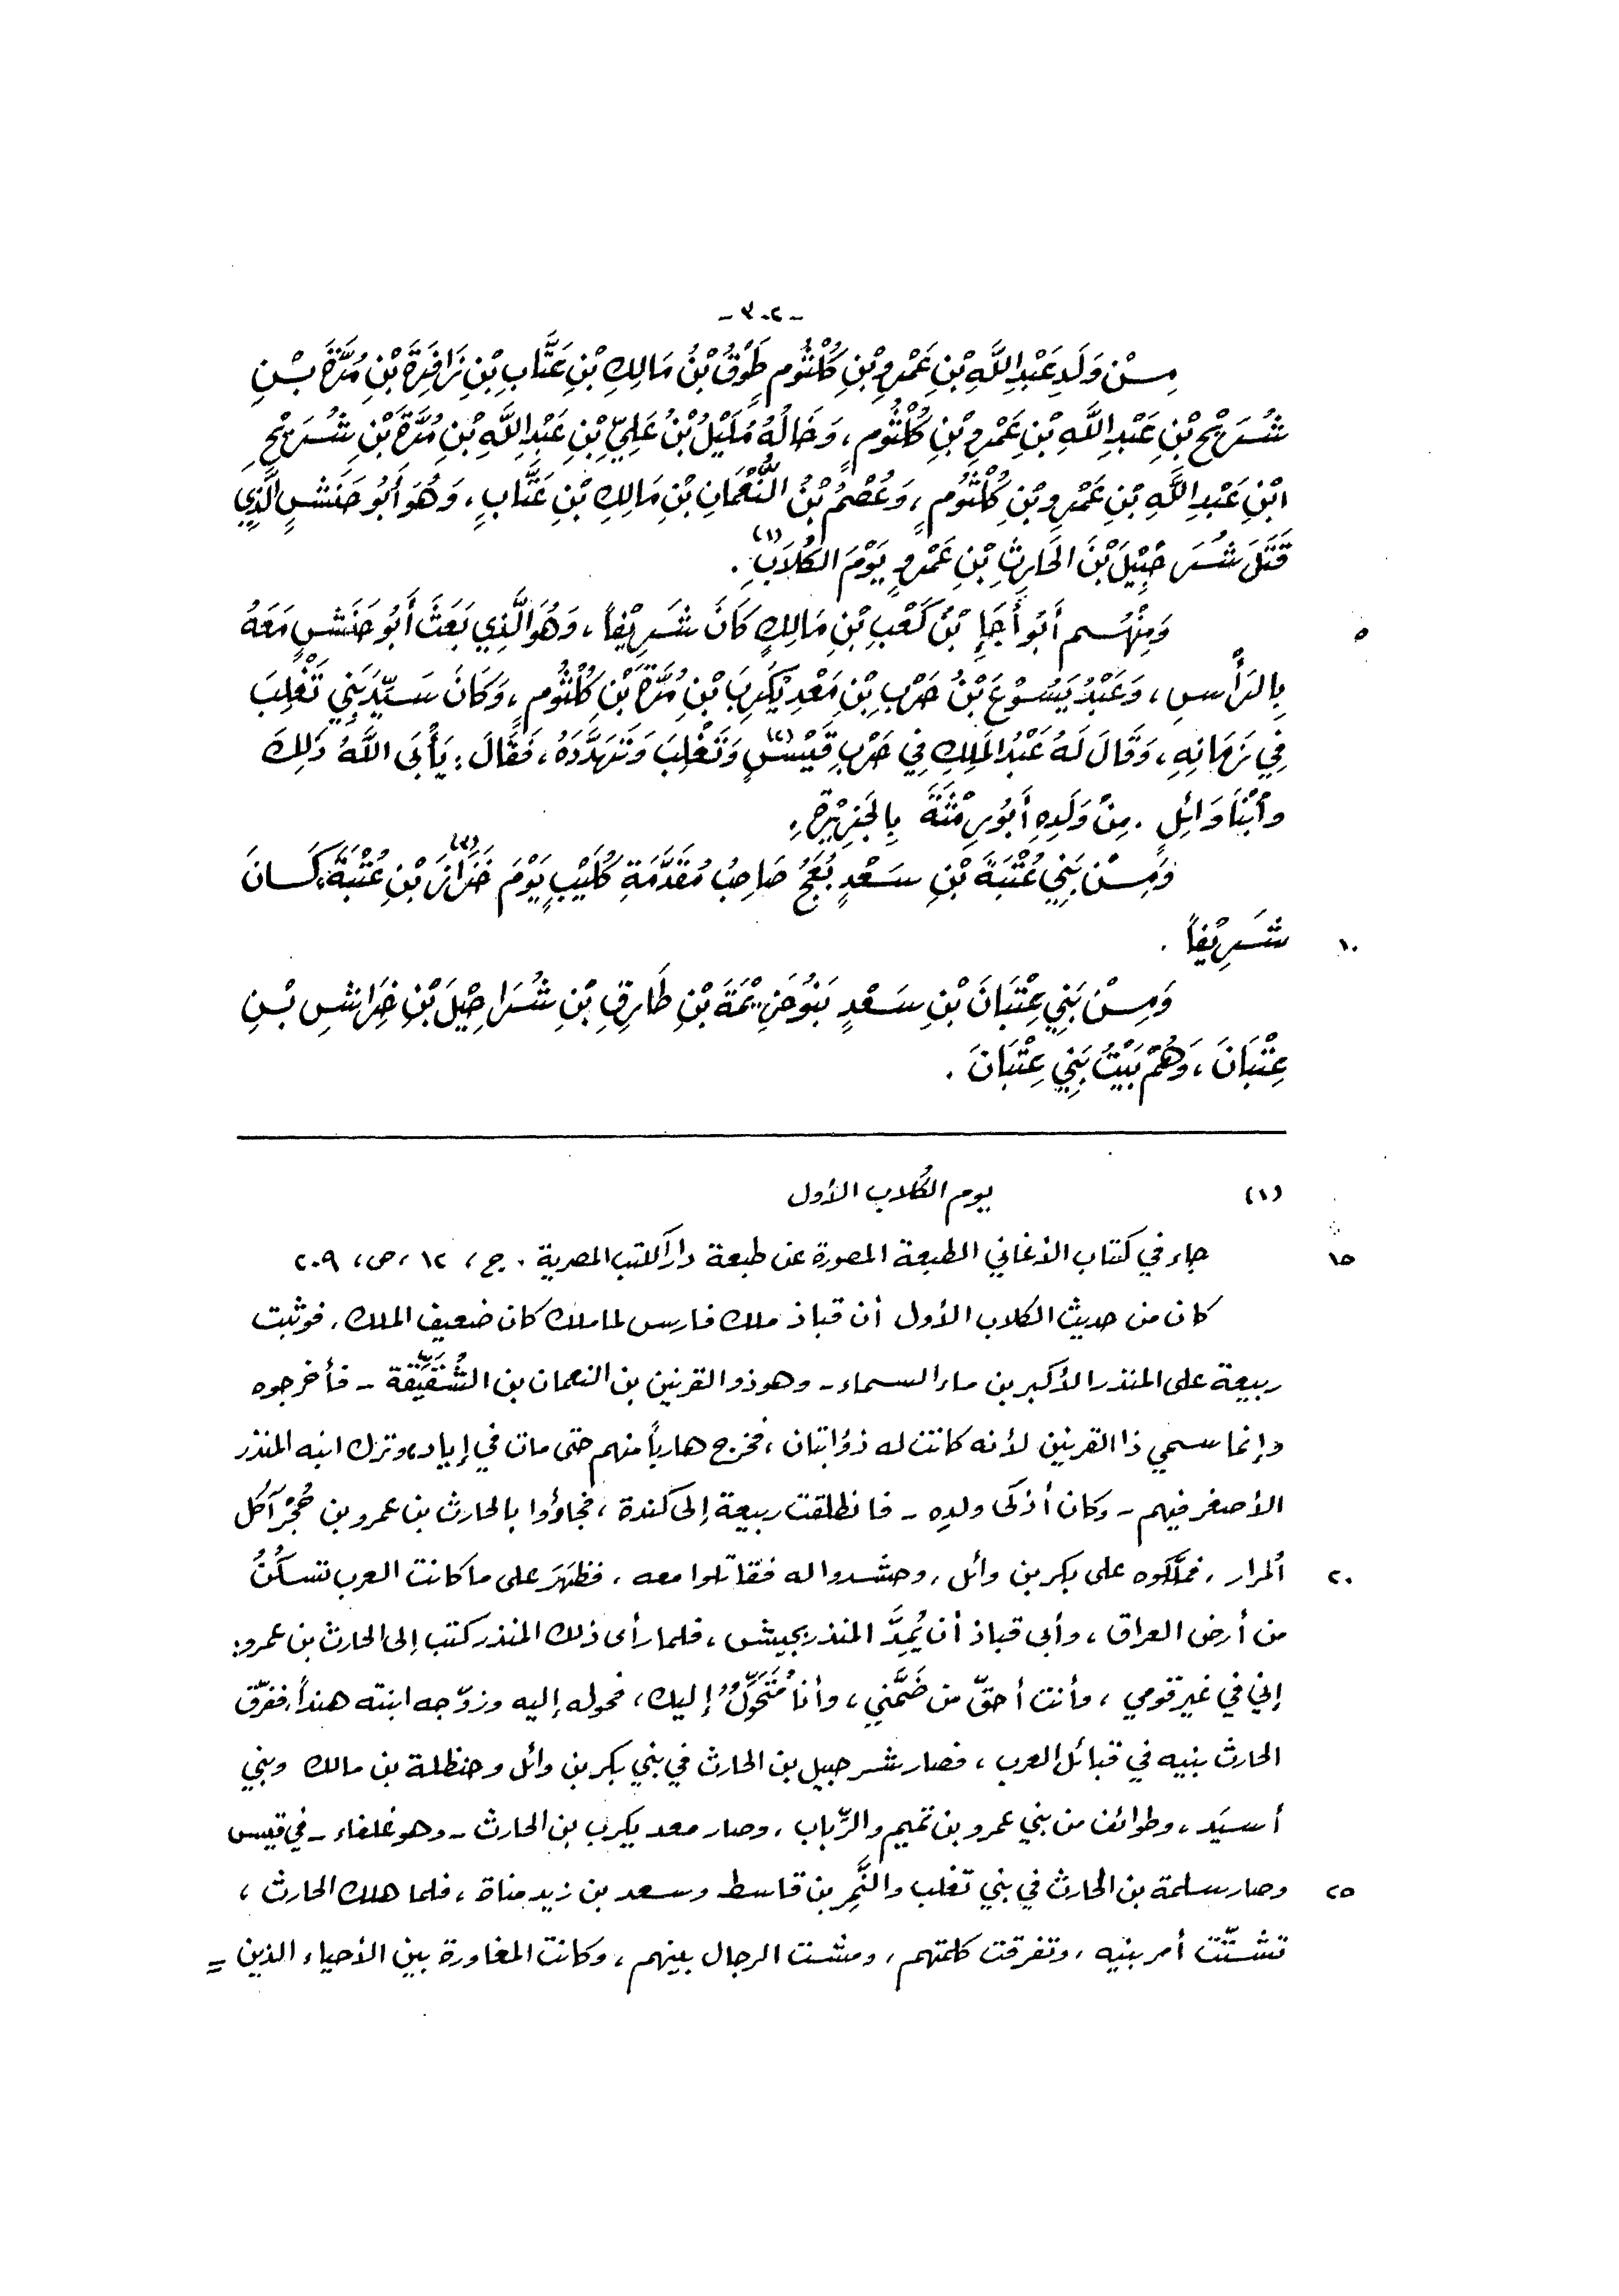 -٣٠٢-
مِنْ وَلَدِ عَبْدِ اللَّهِ بْنِ عَمْرِو بْنِ كُلْثُومٍ طَوْقُ بْنُ مَالِكِ بْنِ عَتَّابِ بْنِ زَافِرَةَ بْنِ مُرَّةَ بْنِ
شُرَيْحِ بْنِ عَبْدِ اللَّهِ بْنِ عَمْرِو بْنِ كُلْثُومٍ، وَخَالُهُ مُلَيْلُ بْنُ عَلِيِّ بْنِ عَبْدِ اللَّهِ بْنِ مُرَّةَ بْنِ شُرَيْحِ
ابْنِ عَبْدِ اللَّهِ بْنِ عَمْرِو بْنِ كُلْثُومٍ، وَعُصْمُ بْنُ النُّعْمَانِ بْنِ مَالِكِ بْنِ عَتَّابٍ، وَهُوَ أَبُو حَنَشٍ الَّذِي
قَتَلَ شُرَحْبِيْلَ بْنَ الحَارِثِ بْنِ عَمْرٍو يَوْمَ الكُلَابِ(١).
وَمِنْهُم أَبُو أَجَإِ بْنُ كَعْبِ بْنِ مَالِكٍ كَانَ شَرِيْفاً، وَهُوَ الَّذِي بَعَثَ أَبُو حَنَشٍ مَعَهُ ٥
بِالرَّأْسِ، وَعَبْدُ يَسُوْعَ بْنُ حَرْبِ بْنِ مَعْدِيْكَرِبَ بْنِ مُرَّةَ بْنِ كُلْثُومٍ، وَكَانَ سَيِّدَ بَنِي تَغْلِبَ
فِي زَمَانِهِ، وَقَالَ لَهُ عَبْدُ المَلِكِ فِي حَرْبِ قَيْسٍ(٢) وَتَغْلِبَ وَتَهَدَّدَهُ، فَقَالَ: يَأْبَى اللَّهُ ذَلِكَ
وَأبْنَا وَائِلٍ. مِنْ وَلَدِهِ أَبُو رِمْثَةَ بِالجَزِيْرَةِ.
وَمِنْ بَنِي عُتْبَةَ بْنِ سَعْدٍ بُعَجُ صَاحِبُ مُقَدَّمَةِ كُلَيْبٍ يَوْمَ خَزَازَ(٣) بْنِ عُتْبَةَ، كَانَ
شَرِيْفاً. ١٠
وَمِنْ بَنِي عِتْبَانَ بْنِ سَعْدٍ بَنُو خُزَيْمَةَ بْنِ طَارِقِ بْنِ شُرَاحِيْلَ بْنِ خِرَاشِ بْنِ
عِتْبَانَ، وَهُمْ بَيْتُ بَنِي عِتْبَانَ.
(١) يوم الكُلاب الأول
جاء في كتاب الأغاني الطبعة المصورة عن طبعة دار الكتب المصرية. ج، ١٢، ص، ٢٠٩ ١٥
كان من حديث الكلاب الأول أن قباذ ملك فارس لما ملك كان ضعيف الملك، فوثبت
ربيعة على المنذر الأكبر بن ماء السماء - وهو ذو القرنين بن النعمان بن الشُّقَيِّقة - فأخرجوه
وإنما سمي ذا القرنين لأنه كانت له ذؤابتان، فخرج هارباً منهم حتى مات في إياد، وترك ابنه المنذر
الأصغر فيهم - وكان أذكَى ولدِه - فانطلقت ربيعة إلى كندة، فجاؤوا بالحارث بن عمرو بن حُجْر آكل
المُرار، فملَّكوه على بكر بن وائل، وحشدوا له فقاتلوا معه، فظهَرَ على ما كانت العرب تسكُنُ ٢٠
من أرض العراق، وأبى قباذ أن يُمِدَّ المنذر بجيش، فلما رأى ذلك المنذر كتب إلى الحارث بن عمرو:
إني في غير قومي، وأنت أحقّ من ضَمَّني، وأنا مُتَحَوِّلٌ إليك، فحوله إليه وزوّجه ابنته هنداً. ففرّق
الحارث بنيه في قبائل العرب، فصار شرحبيل بن الحارث في بني بكر بن وائل وحنظلة بن مالك وبني
أسيّد، وطوائف من بني عمرو بن تميم والرِّباب، وصار معد يكرب بن الحارث - وهو غلفاء - في قيس
وصار سلمة بن الحارث في بني تغلب والنَّمِر بن قاسط وسعد بن زيد مناة، فلما هلك الحارث، ٢٥
تشتّت أمر بنيه، وتفرقت كلمتهم، ومشت الرجال بينهم، وكانت المغاورة بين الأحياء الذين =